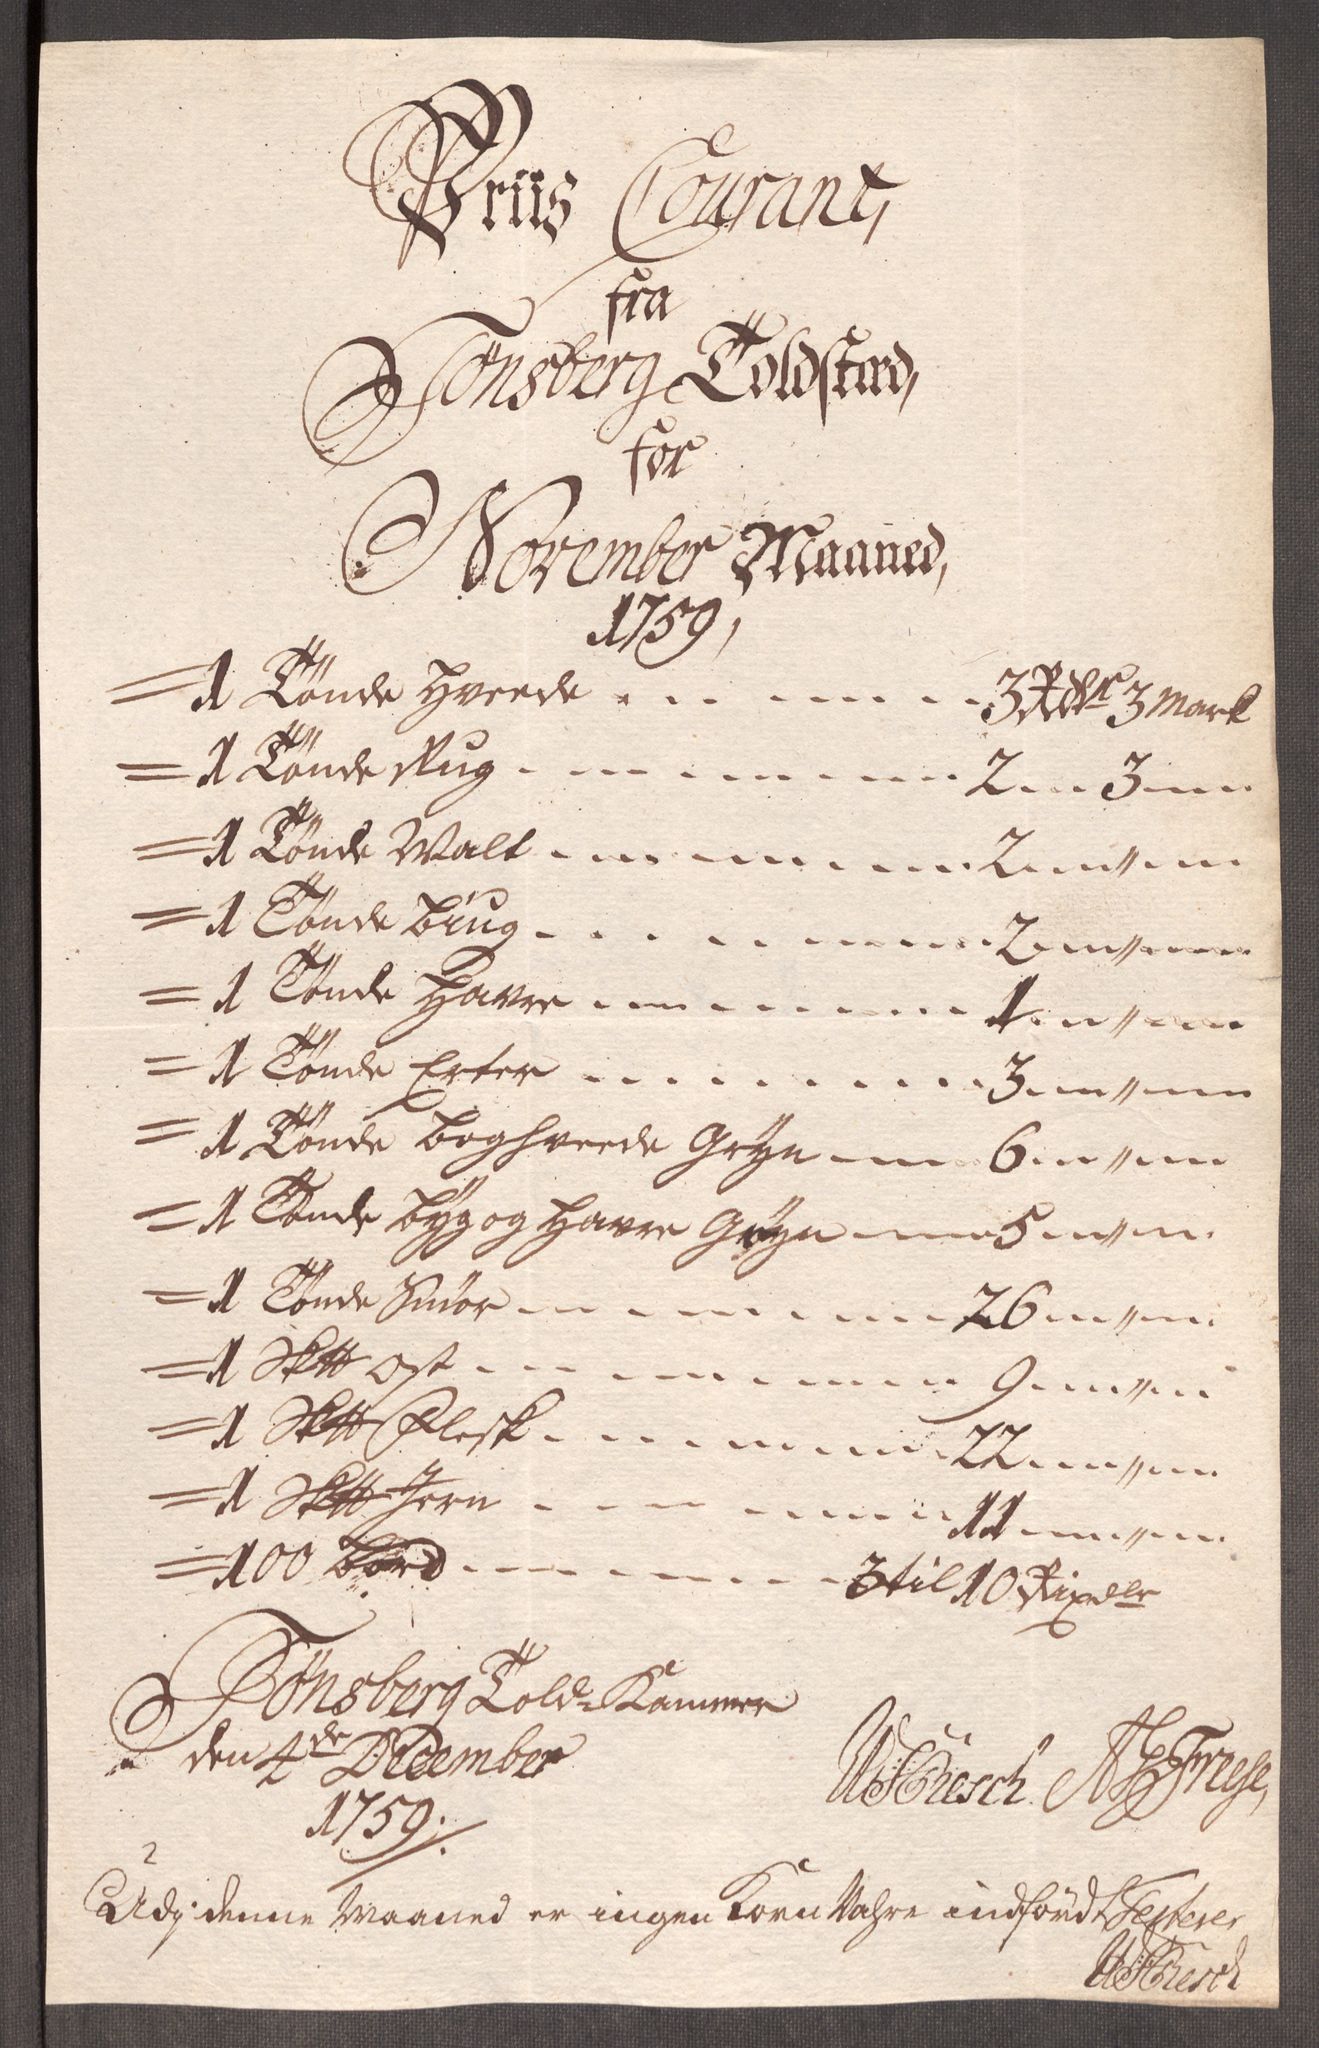 Priis Courant,
fra
Tönsberg Toldsted,
for
November Maaned,
1759,
= 1 Tönde Hveede . . . . 3 Rdlr 3 Mark
= 1 Tönde Rug . . . . 2 " 3 "
= 1 Tönde Malt . . . . 2 " " "
= 1 Tönde Biug . . . . 2 " " "
= 1 Tönde Havre . . . . 1 " " "
= 1 Tönde Erter . . . . 3 " " "
= 1 Tönde Boghveede Gryn . . 6 " " "
= 1 Tönde Byg og Havre Gryn . . 5 " " "
= 1 Tönde Smör . . . . 26 " " "
= 1 Sk℔ Ost . . . . 9 " " "
= 1 Sk℔ Flesk . . . . 22 " " "
= 1 Sk℔ Jern . . . . 11 " " "
= 100 Bord . . . . 3 til 10 Rixdlr
Tönsberg Told-Kammer
den 4de December
1759.
Udj denne Maaned er ingen Korn Vahre indförd